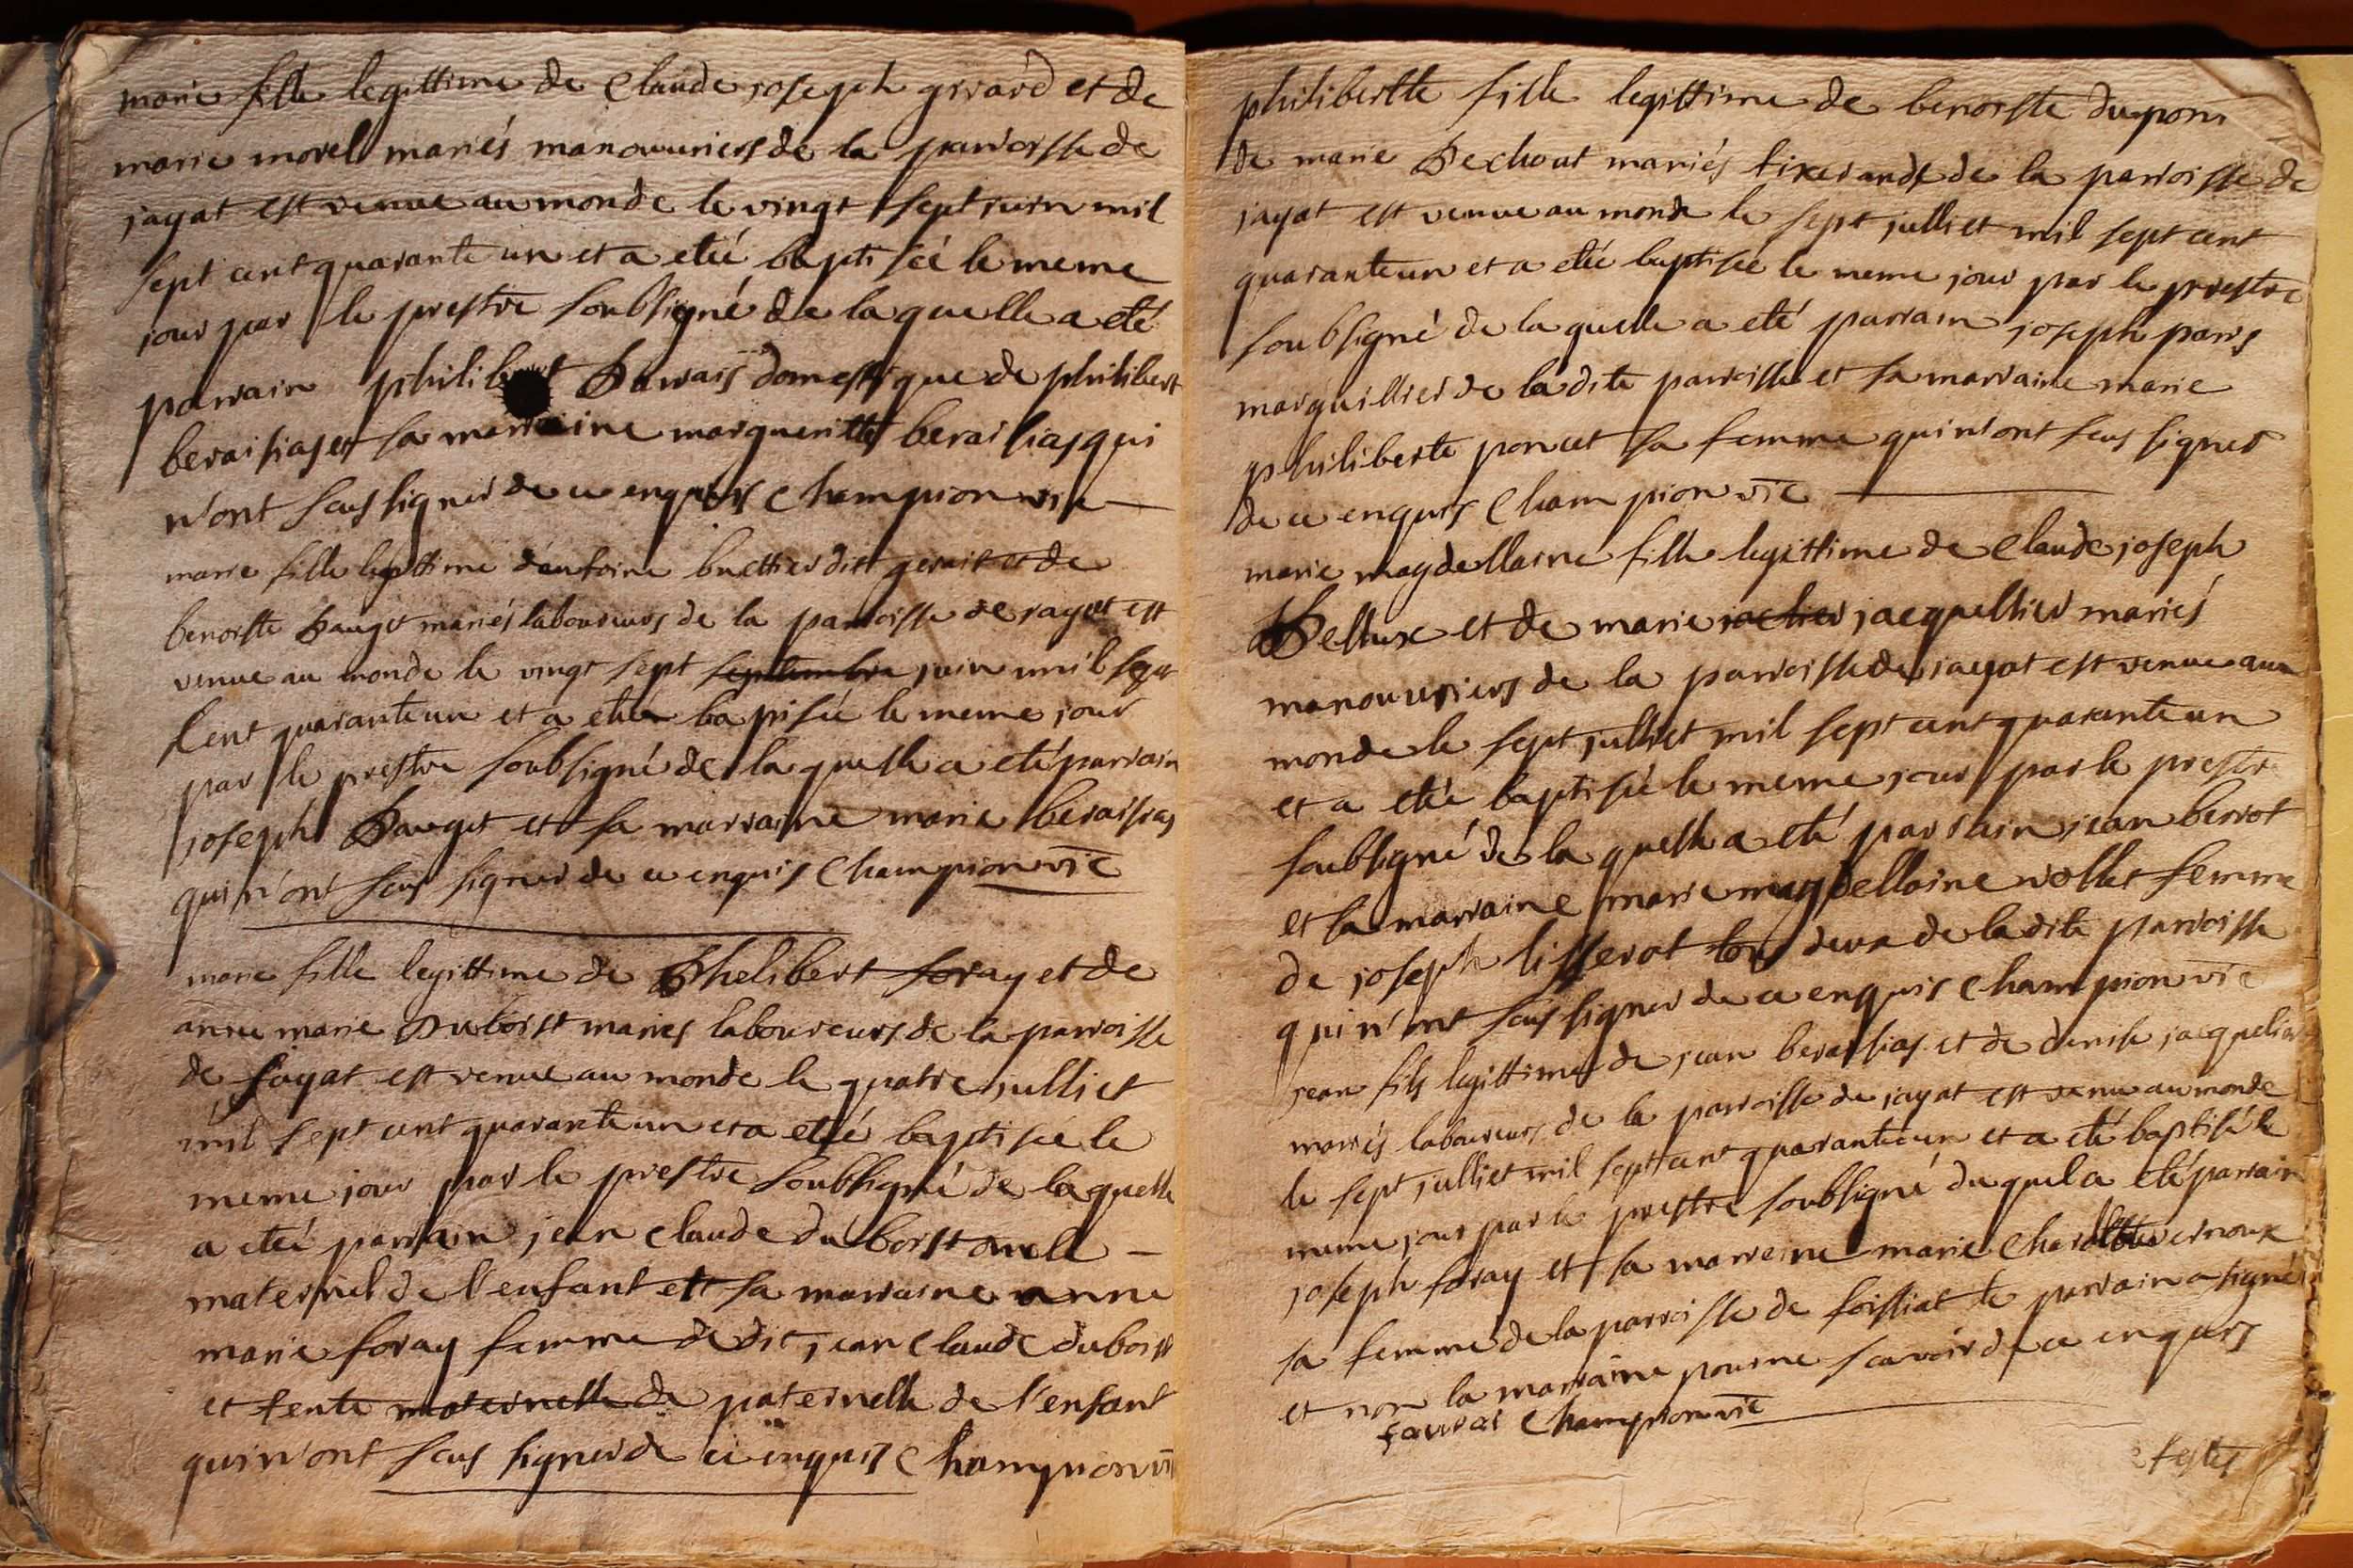 marie fille legittime de Claude joseph girard et de
marie morel mariés manouvriers de la parroisse de
jayat est venue au monde le vingt sept juin mil
sept cent quarante un et a etée baptisée le meme
jour par le prestre soubsigné de laquelle a eté
parrain philibert domestique de philibert
beraisias et sa marraine margueritte beraisias qui
n'ont scus signer de ce enquis Champion vic
marie fille legittime d'antoine buettier dit et de
benoiste Bauget mariés laboureurs de la parroisse de jayat est
venue au monde le vingt sept septembre juin mil sept
Cent quarante un et a etée bapisée le meme jour
par le prestre soubsigné de la quelle a eté parrain
joseph Bauget et sa marraine marie beraisias
qui n'ont scus signer de ce enquis Champion vic
marie fille legittime de Phelibert foray et de
anne marie Duboist mariés laboureurs de la parroisse
de jayat est venue au monde le quatre julliet
mil sept cent quarante un et a etée baptisée le
meme jour par le prestre soubsigné de laquelle
a eté parrain jean Claude duboist oncle
maternel de l'enfant et sa marraine anne
marie foray femme de dit jean Claude duboist
et tente maternelle de paternelle de l'enfant
qui n'ont scus signer de ce enquis Champion vic
philibertte fille legittime de benoiste dupont
de marie Bechout mariés tixerands de la parroisse de
jayat est venue au monde le sept julliet mil sept cent
quarante un et a etée baptisée le meme jour par le prestre
soubsigné de laquelle a eté parrain joseph paris
marguillier de la dite parroisse et sa marraine marie
philiberte poncet sa femme qui n'ont scus signer
de ce enquis Champion vic
marie magdellaine fille legittime de Claude joseph
Bellux et de marie jacquellier mariés
manouvriers de la parroisse de jayat est venue au
monde le sept julliet mil sept cent quarante un
et a etée baptisée le meme jour par le prestre
soubsigné de la quelle a eté parrain jean berrot
et sa marraine marie magdellaine vollet femme
de joseph lisserot tous deux de la dite parroisse
qui n'ont scus signer de ce enquis Champion vic
jean fils legittime de jean beraisias et de denise
mariés laboureurs de la parroisse de jayat est venu au monde
le sept julliet mil sept cent quarante un et a eté baptisé le
meme jour par le prestre soubsigné duquel a eté parrain
joseph foray et sa marreine marie
sa femme de la parroisse de foissiat le parrain a signé
et non la marraine pour ne scavoir de ce enquis
Champion vic